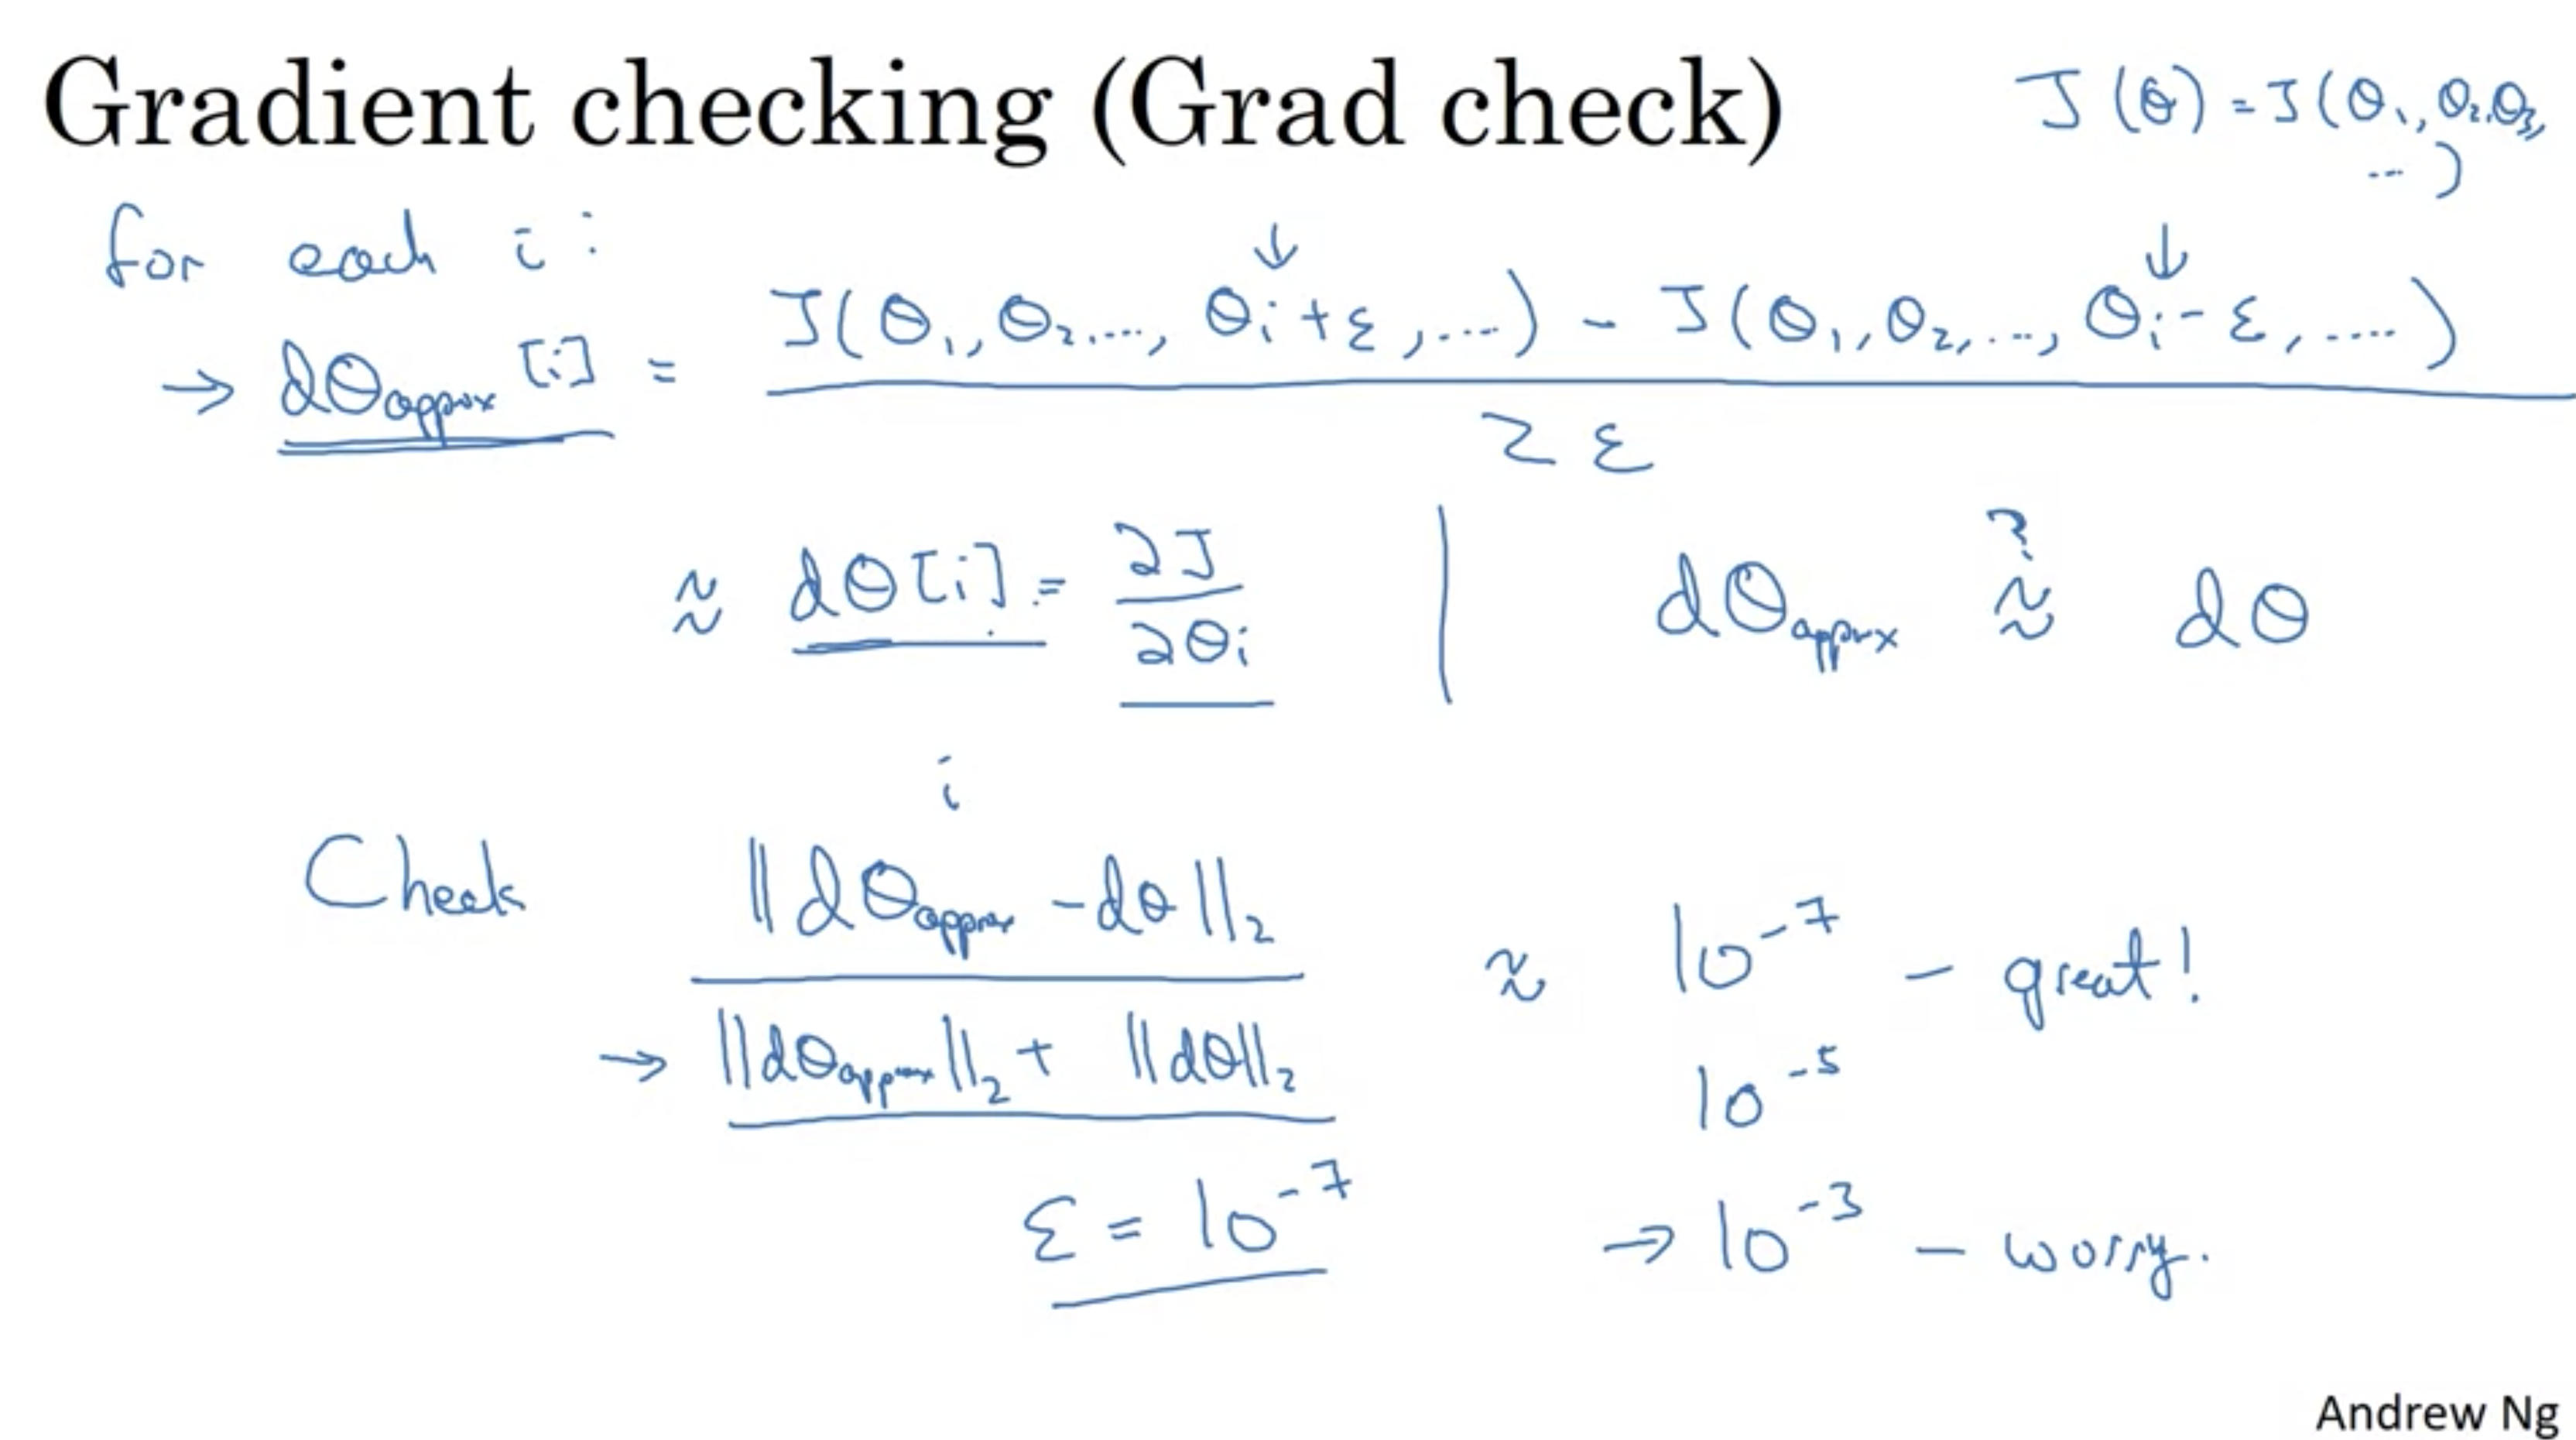 Gradient checking (Grad check)
J(θ) = J(θ₁, θ₂, θ₃, ...)
for each i:
↓ ↓
→ dθapprox[i] = (J(θ₁, θ₂, ..., θᵢ+ε, ...) - J(θ₁, θ₂, ..., θᵢ-ε, ...)) / 2ε
≈ dθ[i] = ∂J/∂θᵢ | dθapprox ≈? dθ
i
Check ||dθapprox - dθ||₂ / (||dθapprox||₂ + ||dθ||₂) ≈ 10⁻⁷ - great!
→ 10⁻⁵
ε = 10⁻⁷ → 10⁻³ - worry.
Andrew Ng